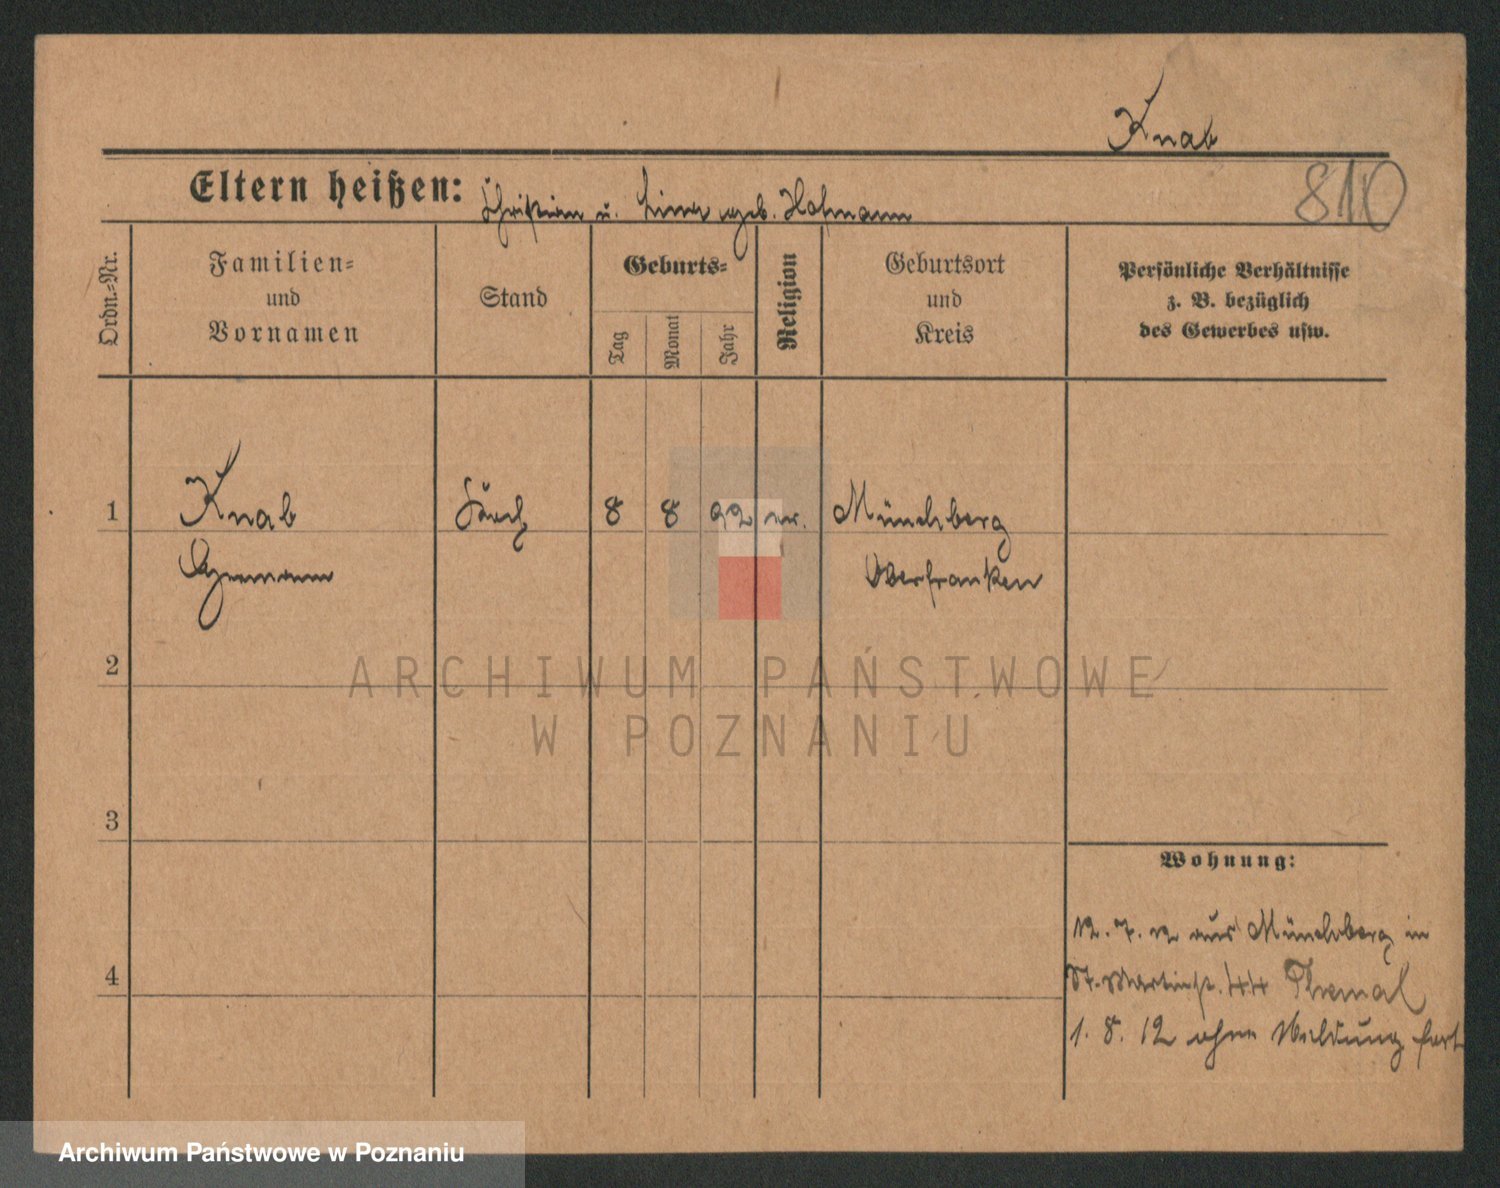 Knab
Eltern heißen: Christian u. geb. Hofmann
810
Ordn.-Nr.
Familien-
und
Vornamen
Stand
Geburts-
Tag
Monat
Jahr
Religion
Geburtsort
und
Kreis
Persönliche Verhältnisse
z. B. bezüglich
des Gewerbes usw.
1 Knab 8 8 92 Münchberg
Hermann Oberfranken
2
ARCHIWUM PAŃSTWOWE
W POZNANIU
3
Wohnung:
12. 7. 12 aus Münchberg in
4
St. Martinstr. 44
1. 8. 12 ohne Meldung fort
Archiwum Państwowe w Poznaniu